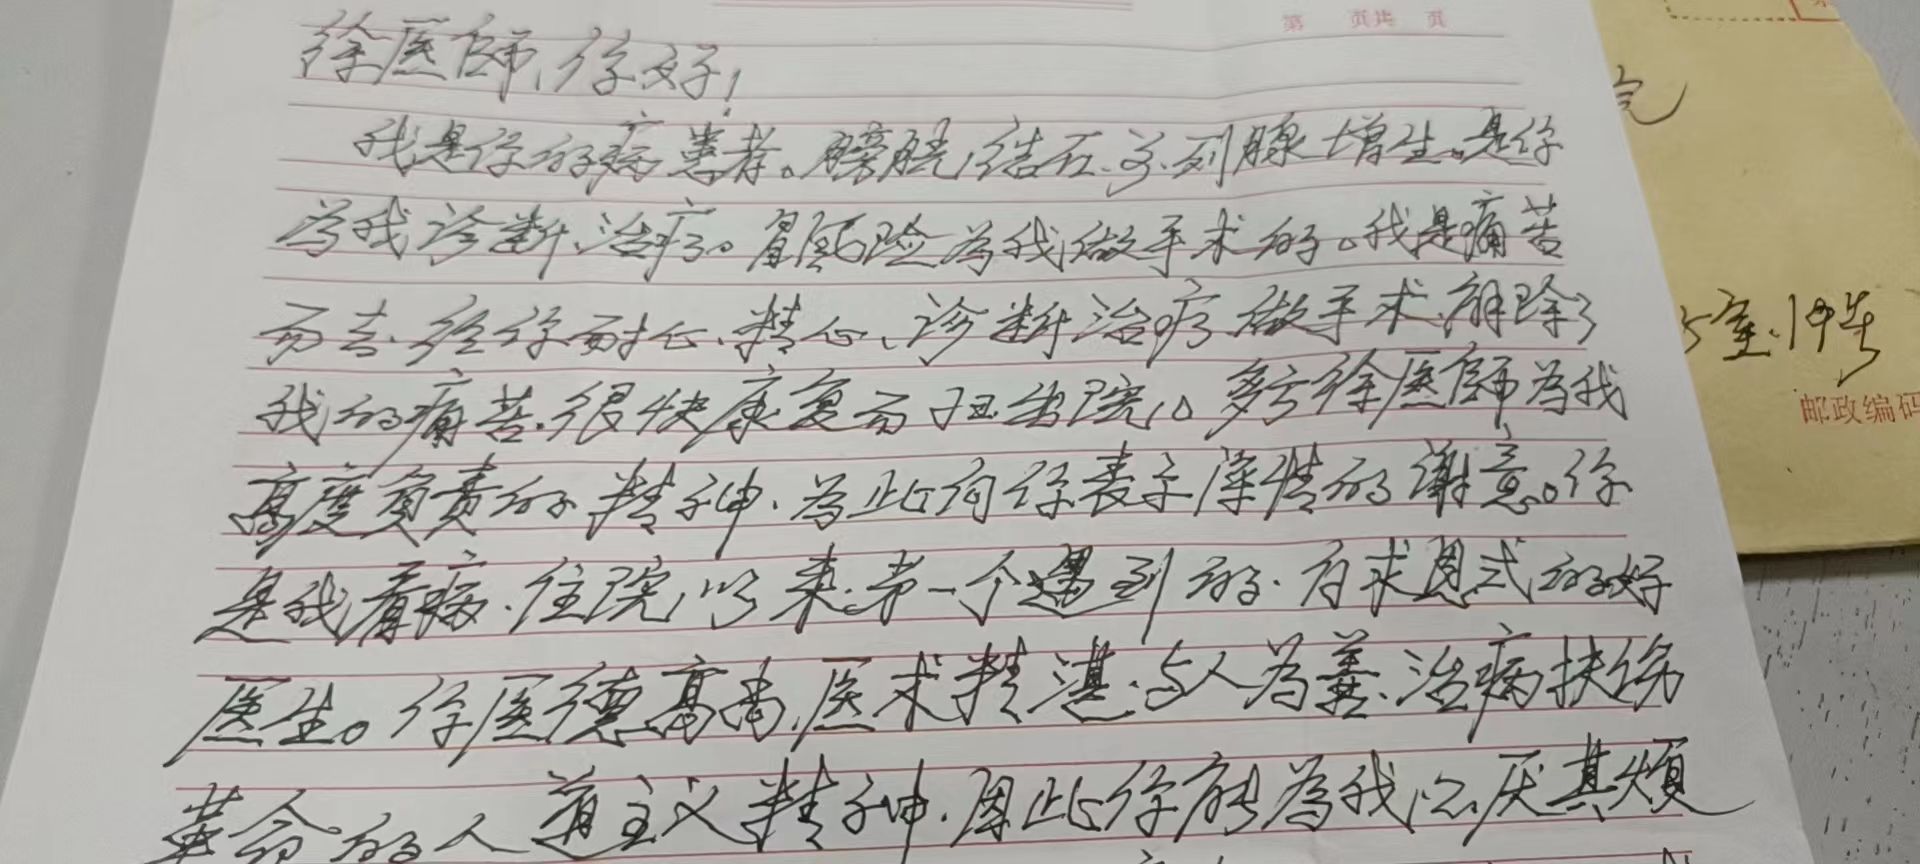 第 页共 页
徐医师、你好!
我是你的病患者。膀胱结石、前列腺增生。是你
为我诊断、治疗。冒风险为我做手术的。我是痛苦
而去.经你耐心、精心、诊断治疗.做手术.解除了
我的痛苦.很快康复而 出院。多亏徐医师为我
高度负责的精神.为此向你表示深情的谢意。你
是我看病.住院以来.第一个遇到的.有求 式的好
医生。你医德高尚、医术精湛.与人为善、治病扶伤
革命的人道主义精神.因此你能为我不厌其烦
室.19号
邮政编码